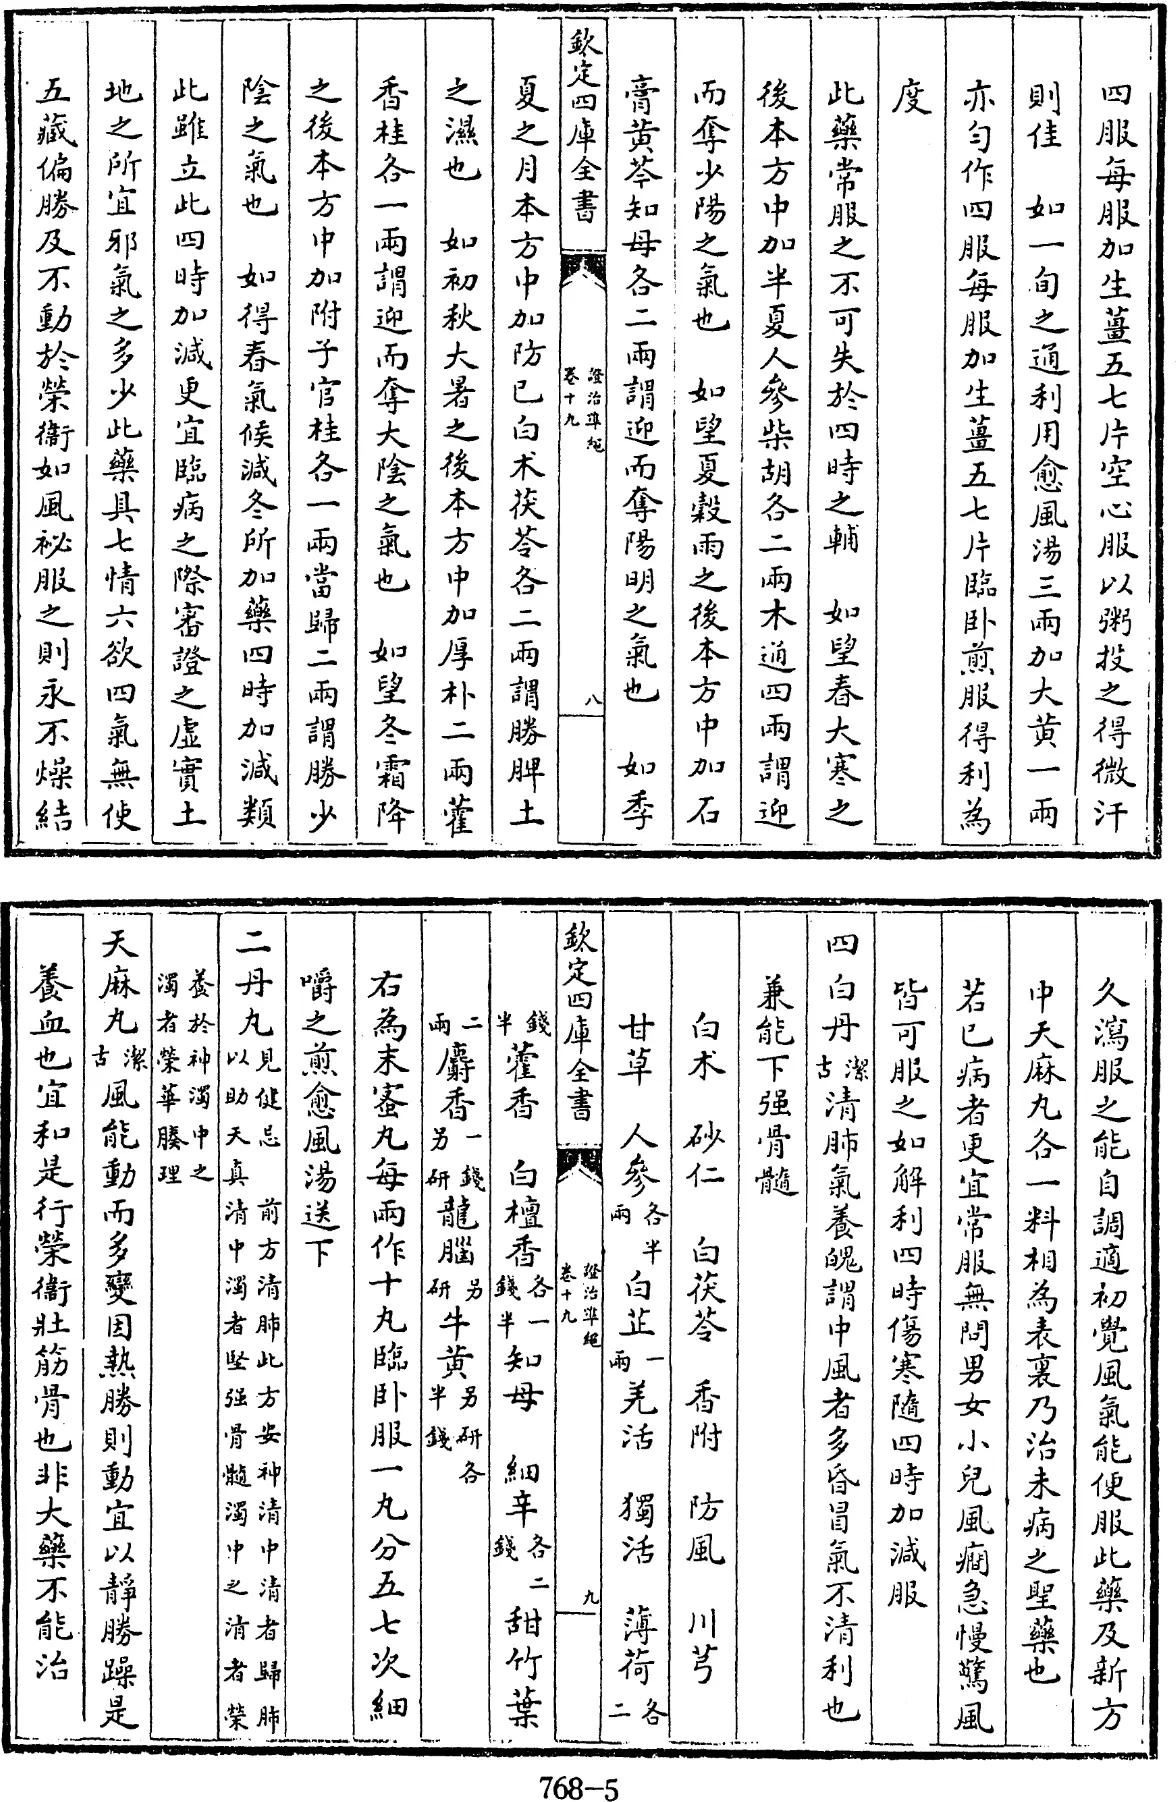 四服每服加生薑五七片空心服以粥投之得微汗
則佳　如一旬之通利用愈風湯三兩加大黄一兩
亦勻作四服每服加生薑五七片臨卧煎服得利為
度
此藥常服之不可失於四時之輔　如望春大寒之
後本方中加半夏人參柴胡各二兩木通四兩謂迎
而奪少陽之氣也　如望夏穀雨之後本方中加石
膏黄芩知母各二兩謂迎而奪陽明之氣也　如季
欽定四庫全書
證治準繩
卷十九
八
夏之月本方中加防已白术茯苓各二兩謂勝脾土
之濕也　如初秋大暑之後本方中加厚朴二兩藿
香桂各一兩謂迎而奪大陰之氣也　如望冬霜降
之後本方中加附子官桂各一兩當歸二兩謂勝少
陰之氣也　如得春氣候減冬所加藥四時加減類
此雖立此四時加減更宜臨病之際審證之虛實土
地之所宜邪氣之多少此藥具七情六欲四氣無使
五藏偏勝及不動於榮衞如風祕服之則永不燥結
久瀉服之能自調適初覺風氣能便服此藥及新方
中天麻丸各一料相為表裏乃治未病之聖藥也
若已病者更宜常服無問男女小兒風癇急慢驚風
皆可服之如解利四時傷寒隨四時加減服
四白丹潔古清肺氣養魄謂中風者多昏冒氣不清利也
兼能下强骨髓
白术　砂仁　白茯苓　香附　防風　川芎
甘草　人參各半兩白芷一兩羌活　獨活　薄荷各二
欽定四庫全書
證治準繩
卷十九
九
錢半藿香　白檀香各一錢半知母　細辛各二錢甜竹葉
二兩麝香一錢另研龍腦另研牛黄另研各半錢
右為末蜜丸每兩作十丸臨卧服一丸分五七次細
嚼之煎愈風湯送下
二丹丸見健忘　前方清肺此方安神清中清者歸肺
以助天真清中濁者堅强骨髓濁中之清者榮
養於神濁中之
濁者榮華腠理
天麻丸潔古風能動而多變因熱勝則動宜以靜勝躁是
養血也宜和是行榮衞壯筋骨也非大藥不能治
768-5